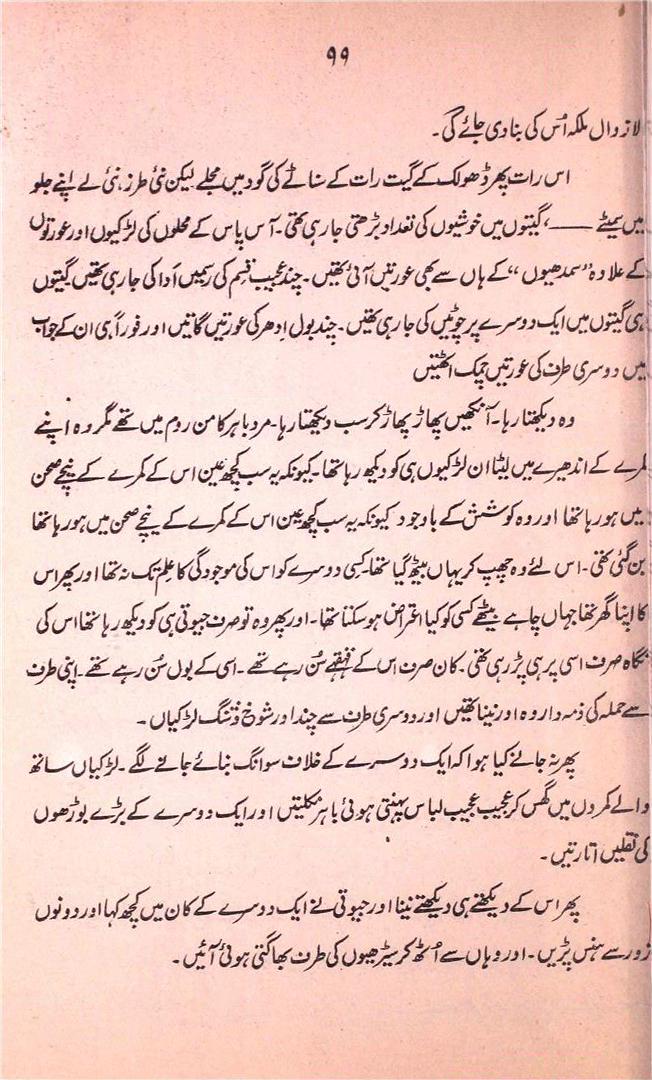 ۹۹
لازوال ملکہ اُس کی بنا دی جائے گی۔
اس رات پھر ڈھولک کے گیت رات کے سناٹے کی گود میں مچلے لیکن نئی طرز، نئی لے اپنے جلو
میں سمیٹے ——، گیتوں میں خوشیوں کی تعداد بڑھتی جا رہی تھی۔ آس پاس کے محلوں کی لڑکیوں اور عورتوں
کے علاوہ ”سمدھیوں“ کے ہاں سے بھی عورتیں آئی تھیں۔ چند عجیب قسم کی رسمیں اَدا کی جا رہی تھیں گیتوں
ہی گیتوں میں ایک دوسرے پر چوٹیں کی جا رہی تھیں۔ چند بول اِدھر کی عورتیں گاتیں اور فوراً ہی ان کے جواب
میں دوسری طرف کی عورتیں چمک اٹھتیں
وہ دیکھتا رہا۔ آنکھیں پھاڑ پھاڑ کر سب دیکھتا رہا۔ مرد باہر کامن روم میں تھے مگر وہ اپنے
کمرے کے اندھیرے میں لیٹا ان لڑکیوں ہی کو دیکھ رہا تھا۔ کیونکہ یہ سب کچھ عین اس کے کمرے کے نیچے صحن
میں ہو رہا تھا اور وہ کوشش کے باوجود کیونکہ یہ سب کچھ عین اس کے کمرے کے نیچے صحن میں ہو رہا تھا
بن گئی تھی۔ اس لئے وہ چھپ کر یہاں بیٹھ گیا تھا، کسی دوسرے کو اس کی موجودگی کا علم تک نہ تھا اور پھر اس
کا اپنا گھر تھا جہاں چاہے بیٹھے کسی کو کیا اعتراض ہو سکتا تھا۔ اور پھر وہ تو صرف جیوتی ہی کو دیکھ رہا تھا اس کی
نگاہ صرف اسی پر ہی پڑ رہی تھی۔ کان صرف اس کے قہقہے سُن رہے تھے۔ اسی کے بول سُن رہے تھے۔ اپنی طرف
سے حملہ کی ذمہ دار وہ اور نینا تھیں اور دوسری طرف سے چند اور شوخ و شنگ لڑکیاں۔
پھر نہ جانے کیا ہوا کہ ایک دوسرے کے خلاف سوانگ بنائے جانے لگے۔ لڑکیاں ساتھ
والے کمروں میں گھس کر عجیب عجیب لباس پہنتی ہوئی باہر نکلیتں اور ایک دوسرے کے بڑے بوڑھوں
کی نقلیں اتارتیں۔
پھر اس کے دیکھتے ہی دیکھتے نینا اور جیوتی نے ایک دوسرے کے کان میں کچھ کہا اور دونوں
زور سے ہنس پڑیں۔ اور وہاں سے اُٹھ کر سیڑھیوں کی طرف بھاگتی ہوئی آئیں۔